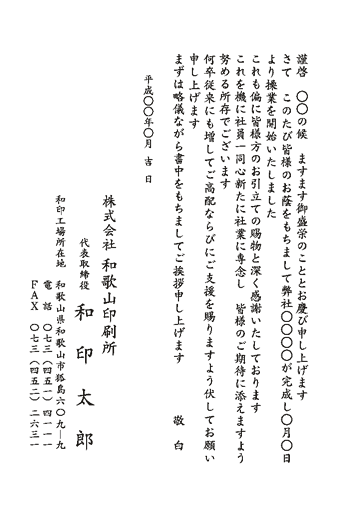 謹啓　〇〇の候　ますます御盛栄のこととお慶び申し上げます
さて　このたび皆様のお蔭をもちまして弊社〇〇〇〇が完成し〇月〇日
より操業を開始いたしました
これも偏に皆様方のお引立ての賜物と深く感謝いたしております
これを機に社員一同心新たに社業に専念し　皆様のご期待に添えますよう
努める所存でございます
何卒従来にも増してご高配ならびにご支援を賜りますよう伏してお願い
申し上げます
まずは略儀ながら書中をもちましてご挨拶申し上げます　　敬　白
平成〇〇年〇月　吉　日
株式会社 和歌山印刷所
代表取締役　和　印　太　郎
和印工場所在地　和歌山県和歌山市狐島六〇九－九
電　話　〇七三（四五一）四一一一
ＦＡＸ　〇七三（四五二）二六三一